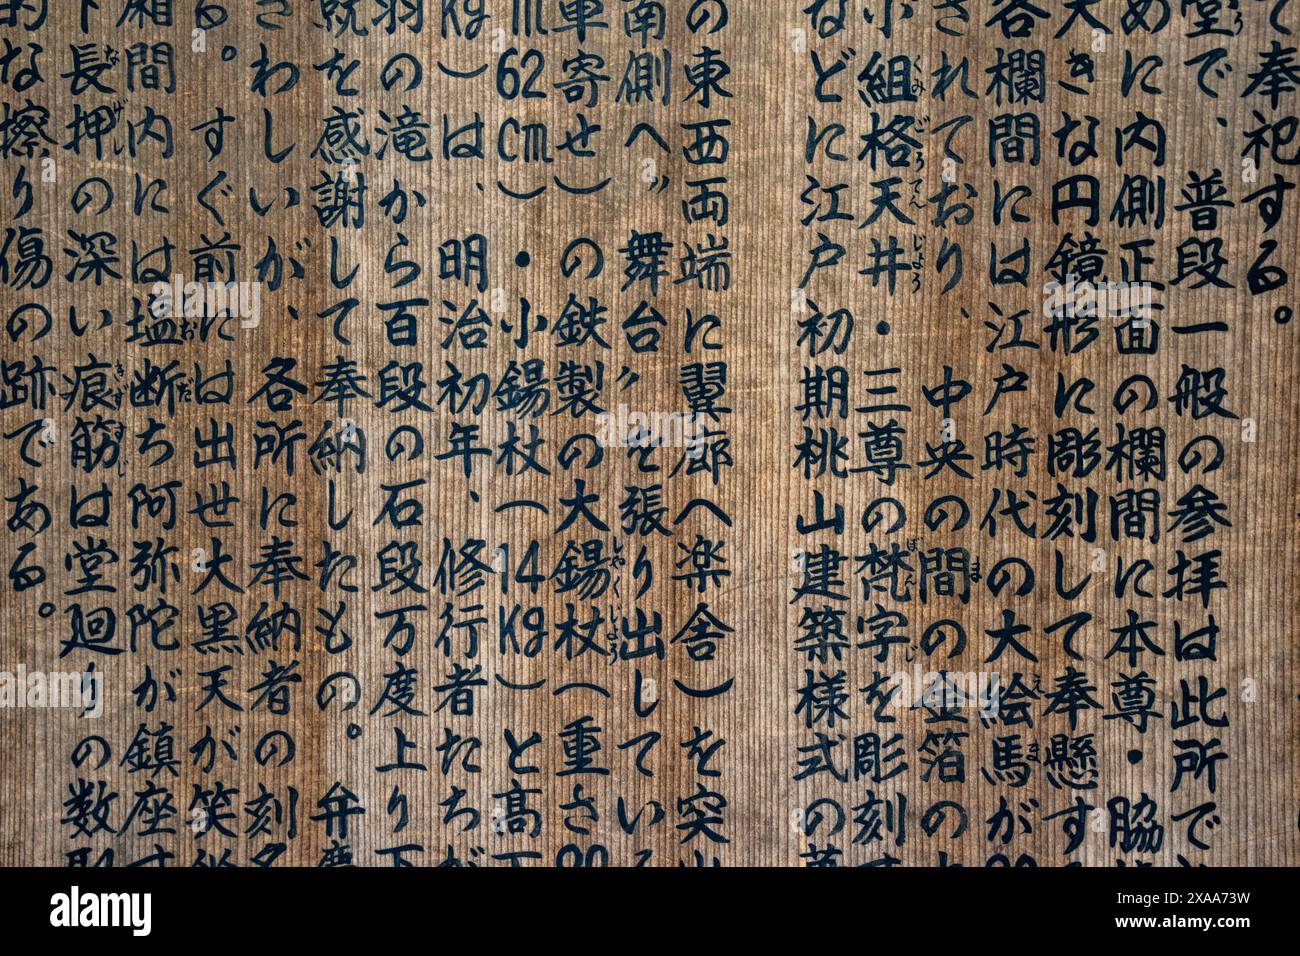 て奉祀する。
堂で、普段一般の参拝は此所で
めに内側正面の欄間に本尊・脇
大きな円鏡形に彫刻して奉懸す
各欄間には江戸時代の大絵馬が
されており、中央の間の金箔の
小組格天井・三尊の梵字を彫刻す
などに江戸初期桃山建築様式の
の東西両端に翼廊へ楽舎)を突
南側へ〝舞台〟を張り出してい
車寄せ)の鉄製の大錫杖(重さ90
m62cm)・小錫杖(14Kg)と高下
Kg)は、明治初年、修行者たちが
羽の滝から百段の石段万度上り下
就を感謝して奉納したもの。弁慶
さわしいが、各所に奉納者の刻名
る。すぐ前には出世大黒天が笑
廂間内には塩断ち阿弥陀が鎮座す
下長押の深い痕筋は堂廻りの数取
的な擦り傷の跡である。
alamy
Image ID: 2XAA73W
www.alamy.com